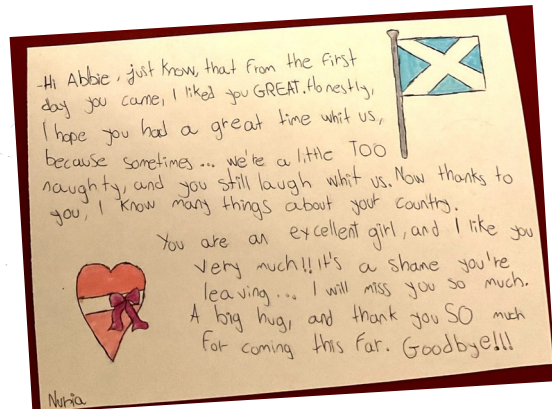 Hi Abbie, just know, that from the first
day you came, I liked you GREAT. Honestly,
I hope you had a great time whit us,
because sometimes... we're a little TOO
naughty, and you still laugh whit us. Now thanks to
you, I know many things about your country.
You are an excellent girl, and I like you
very much!! It's a shame you're
leaving... I will miss you so much.
A big hug, and thank you SO much
for coming this far. Goodbye!!!
Nuria